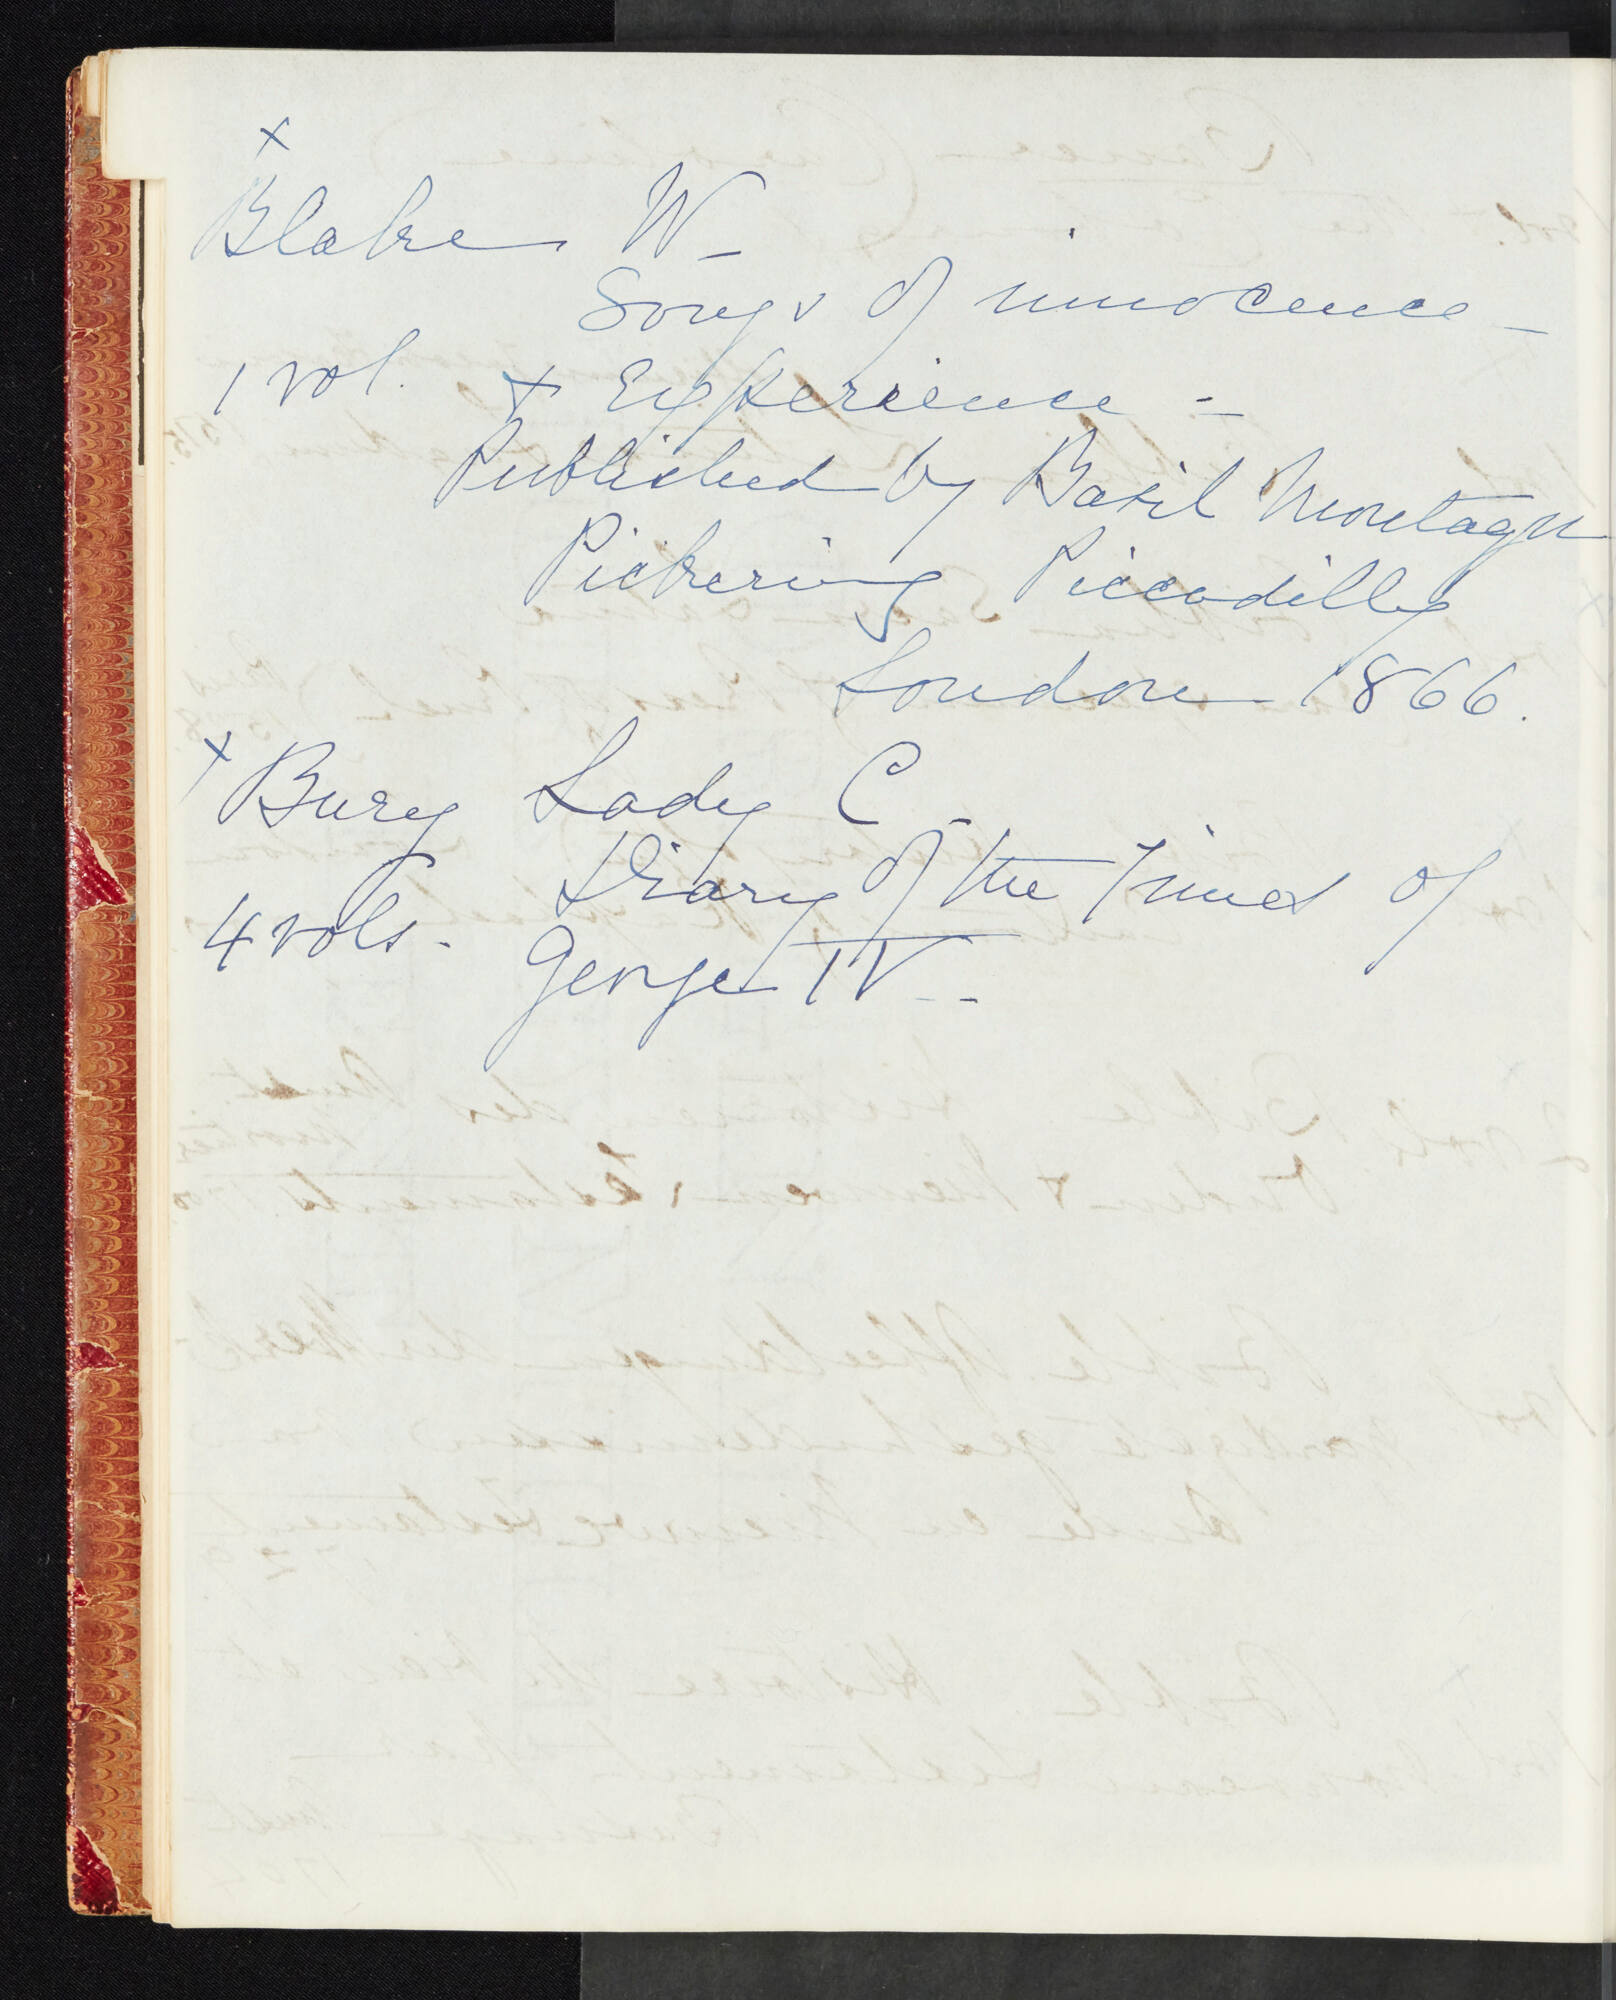 x
Blake W -
Songs of innocence -
1 vol. + Experience -
Published by Basil Montagu
Pickering Piccadilly
London 1866.
x Bury Lady C -
4 vols - Diary of the Times of
George IV - -